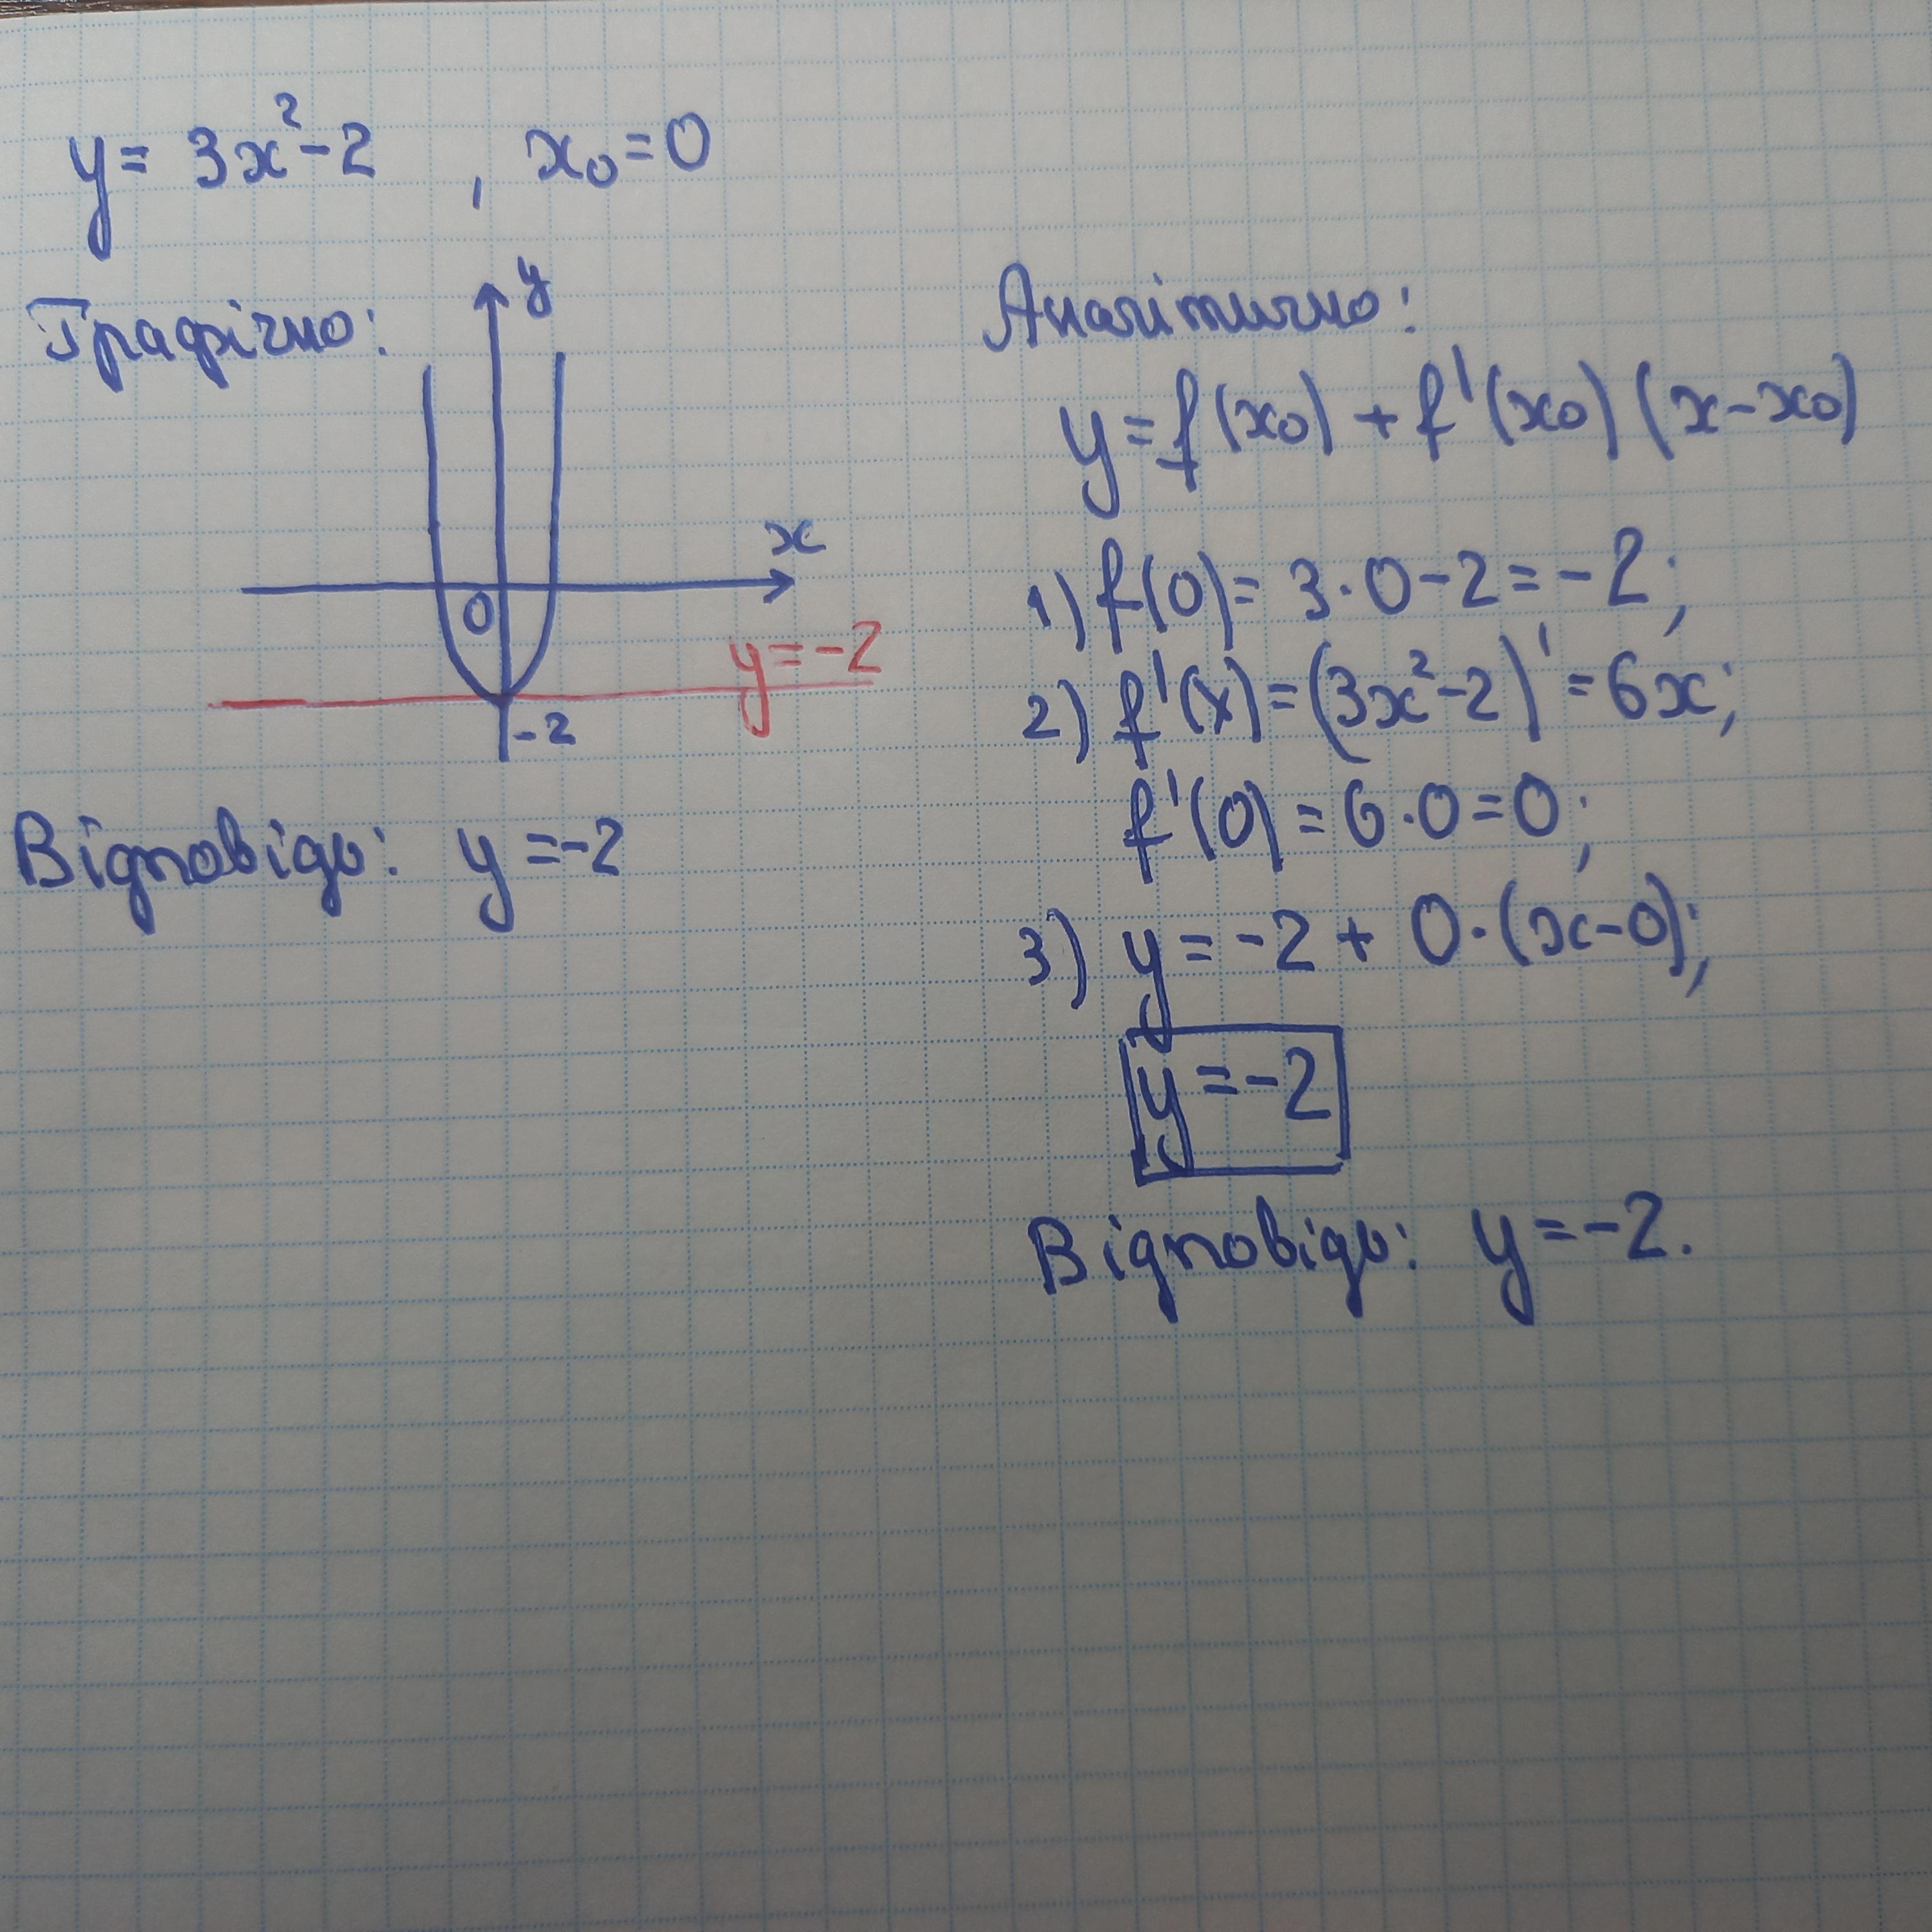 y = 3x² - 2 , x₀ = 0
Графічно:
y
x
0
y = -2
-2
Відповідь: y = -2
Аналітично:
y = f(x₀) + f'(x₀)(x - x₀)
1) f(0) = 3·0 - 2 = -2;
2) f'(x) = (3x² - 2)' = 6x;
f'(0) = 6·0 = 0;
3) y = -2 + 0·(x - 0);
y = -2
Відповідь: y = -2.